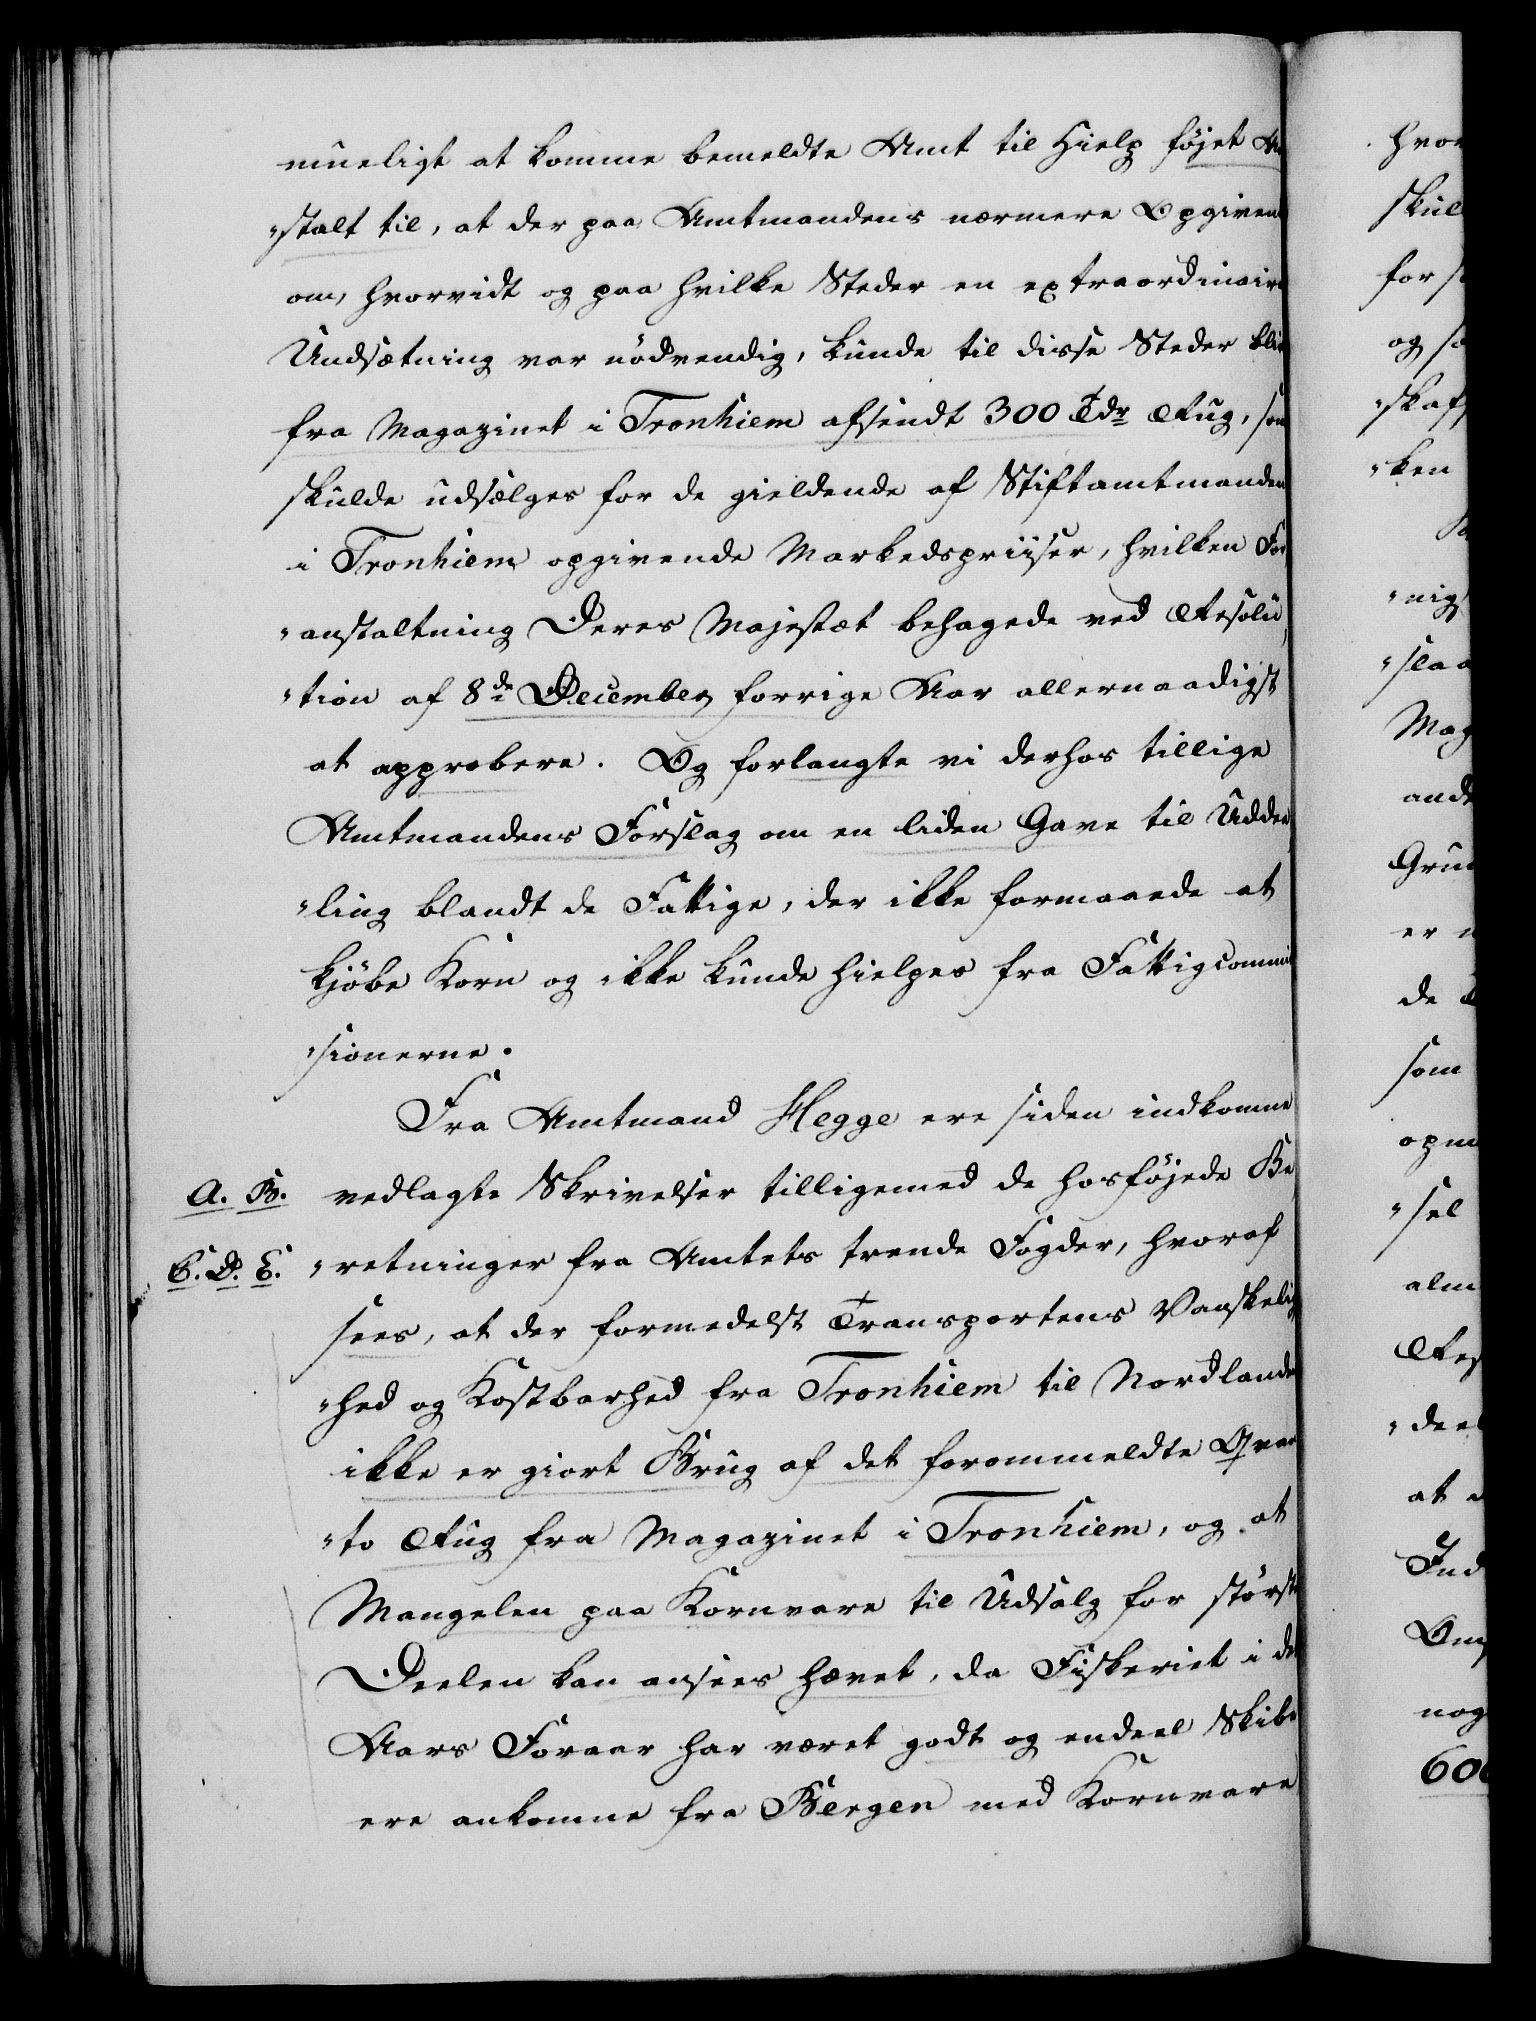 mueligt at komme bemeldte Amt til Hielp føjet An
„stalt til, at der paa Amtmandens nærmere Opgivend
om, hvorvidt og paa hvilke Steder en extraordinair
Undsætning var nødvendig, kunde til disse Steder bli
fra Magazinet i Tronhiem afsendt 300 Tdr Rug, som
skulde udsælges for de gieldende af Stiftamtmanden
i Tronhiem opgivende Markedspriiser, hvilken For
„anstaltning Deres Majestæt behagede ved Resolu
„tion af 8de December forrige Aar allernaadigst
at approbere. Og forlangte vi derhos tillige
Amtmandens Forslag om en liden Gave til Uddee
„ling blandt de Fattige, der ikke formaaede at
kjøbe Korn og ikke kunde hielpes fra Fattigcommis
„sionerne.
Fra Amtmand Hegge ere siden indkomne
A. B. vedlagte Skrivelser tilligemed de hosføjede Be
C. D. E. „retninger fra Amtets trende Fogder, hvoraf
sees, at der formedelst Transportens Vanskelig
„hed og Kostbarhed fra Tronhiem til Nordlande
ikke er giort Brug af det forommeldte Qvan
„to Rug fra Magazinet i Tronhiem, og at
Mangelen paa Kornvare til Udsalg for største
Deelen kan ansees hævet, da Fiskeriet i de
Aars Foraar har været godt og endeel Skibe
ere ankomne fra Bergen med Kornvare
hvor
skul
for s
og sa
„skaf
„ken
„nigs
„slaa
Mag
ande
Grun
er
de
som
opm
„sel
alm
Res
„deel
at
Ind
Om
nog
600